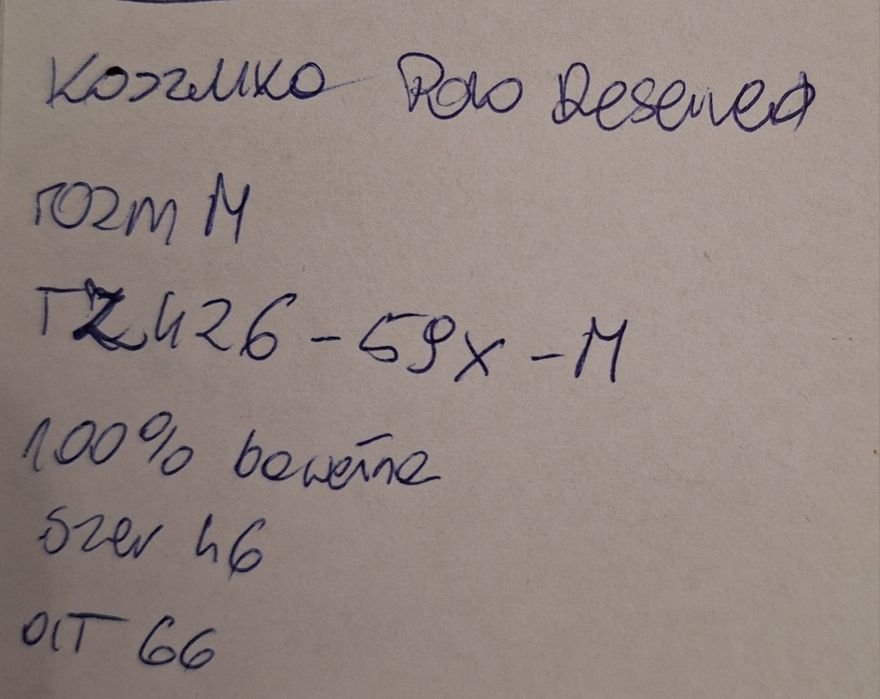 Koszulka Polo Reserved
rozm M
TZ426-59X-M
100% bawełna
szer 46
dłT 66